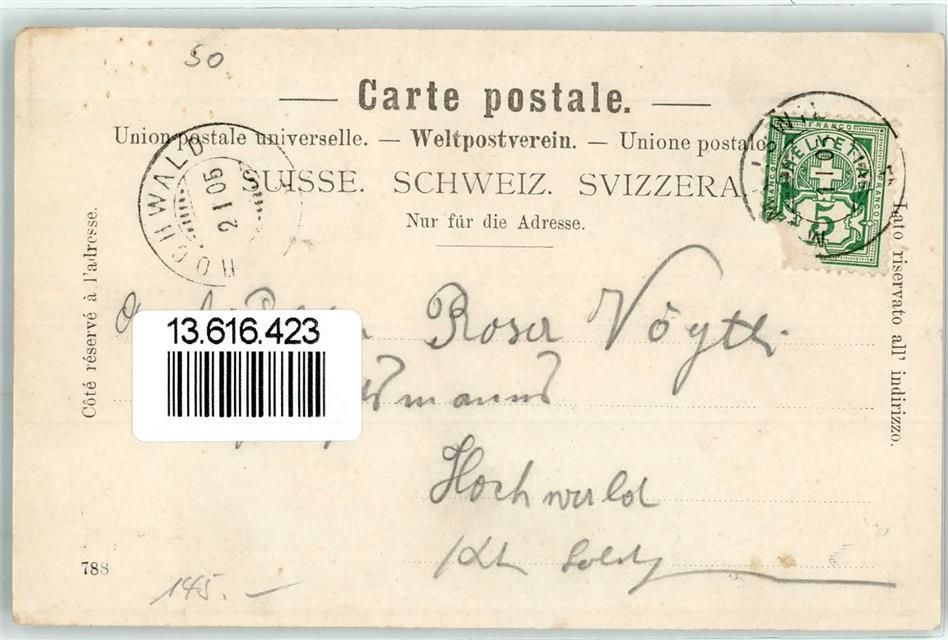 50
Carte postale.
Union postale universelle. — Weltpostverein. — Unione postale
SUISSE. SCHWEIZ. SVIZZERA.
Nur für die Adresse.
HOCHWALD
2 I 05
FRANCO
HELVETIA
FRANCO
5
Côté réservé à l'adresse.
Lato riservato all' indirizzo.
13.616.423
Rosa Vögtli
Hochwald
Kt. Soloth
788
145.—